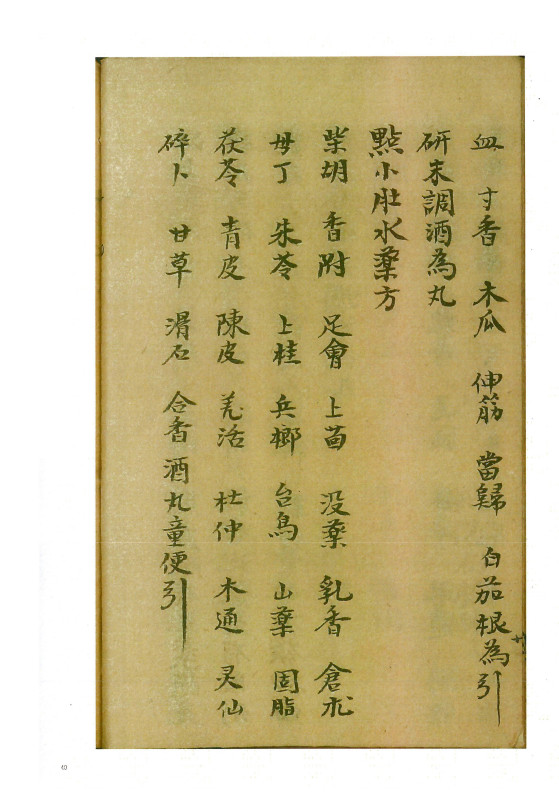 血 寸香 木瓜 伸筋 當歸 白茄根為引
研末調酒為丸
點小肚水藥方
柴胡 香附 足會 上茴 没藥 乳香 倉朮
毋丁 朱苓 上桂 兵榔 台烏 山藥 固脂
茯苓 青皮 陳皮 羌活 杜仲 木通 灵仙
碎卜 甘草 滑石 合香 酒丸童便引